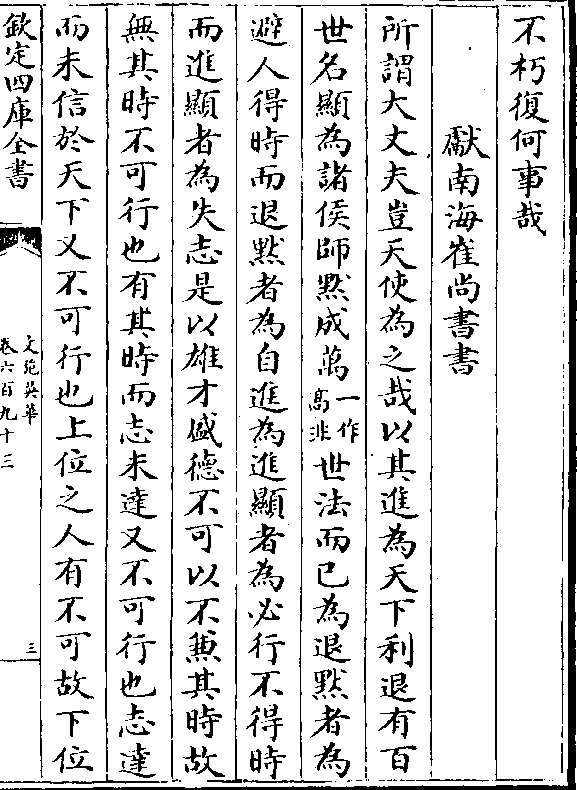 不朽復何事哉
獻南海崔尚書書
所謂大丈夫豈天使為之哉以其進為天下利退有百
世名顯為諸侯師黙成萬一作高非世法而已為退黙者為
避人得時而退黙者為自進為進顯者為必行不得時
而進顯者為失志是以雄才盛德不可以不兼其時故
無其時不可行也有其時而志未達又不可行也志達
而未信於天下又不可行也上位之人有不可故下位
欽定四庫全書
文苑英華
卷六百九十三
三